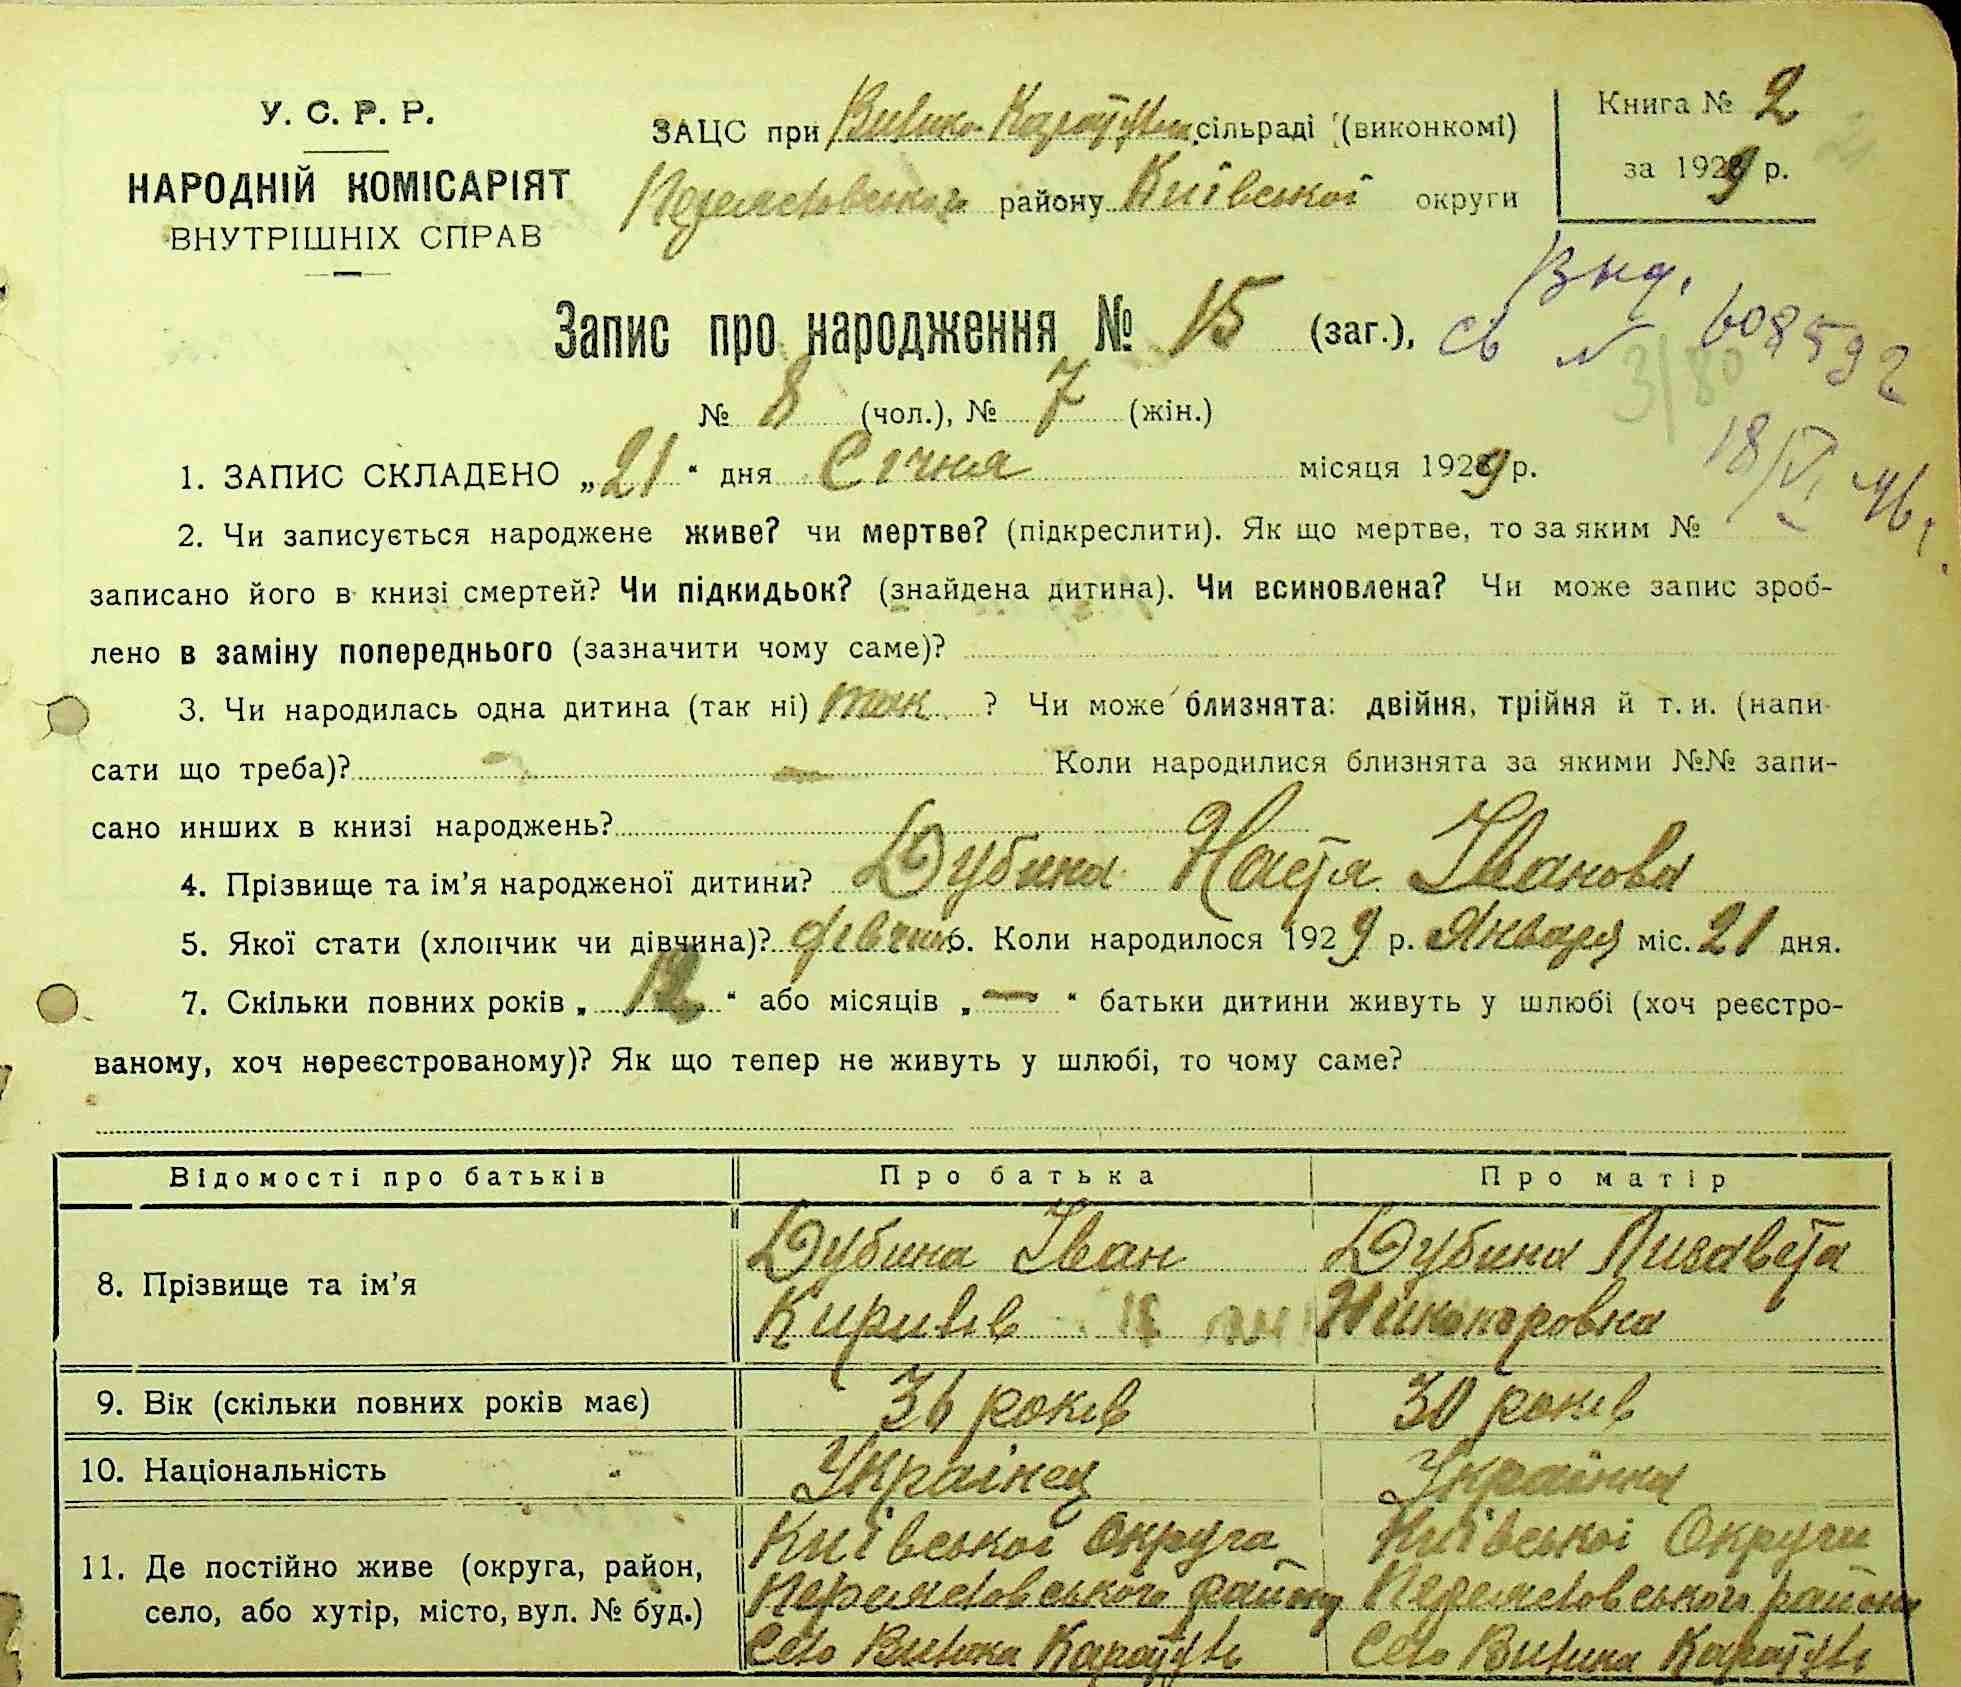 У. С. Р. Р.
НАРОДНІЙ КОМІСАРІЯТ
ВНУТРІШНІХ СПРАВ
ЗАЦС при Велико Каратуль сільраді (виконкомі)
Переяславського району Київської округи
Книга № 2
за 1929 р.
Вид.
св № 608592
3/80
18/VI 46.
Запис про народження № 15 (заг.),
№ 8 (чол.), № 7 (жін.)
1. ЗАПИС СКЛАДЕНО „21“ дня Січня місяця 1929 р.
2. Чи записується народжене живе? чи мертве? (підкреслити). Як що мертве, то за яким №
записано його в книзі смертей? Чи підкидьок? (знайдена дитина). Чи всиновлена? Чи може запис зроб-
лено в заміну попереднього (зазначити чому саме)?
3. Чи народилась одна дитина (так ні) так ? Чи може близнята: двійня, трійня й т. и. (напи-
сати що треба)? — Коли народилися близнята за якими №№ запи-
сано инших в книзі народжень?
4. Прізвище та ім’я народженої дитини? Дубина Настя Іванова
5. Якої стати (хлопчик чи дівчина)? дівчин 6. Коли народилося 1929 р. Января міс. 21 дня.
7. Скільки повних років „12“ або місяців „—“ батьки дитини живуть у шлюбі (хоч реєстро-
ваному, хоч нереєстрованому)? Як що тепер не живуть у шлюбі, то чому саме?
Відомості про батьків Про батька Про матір
8. Прізвище та ім’я Дубина Іван Дубина Лисавета
Кирилів Никоноровна
9. Вік (скільки повних років має) 36 років 30 років
10. Національність Українец Українка
11. Де постійно живе (округа, район, Київської Округа Київської Округи
село, або хутір, місто, вул. № буд.) Переяславського району Переяславського району
Село Велика Каратуль Село Велика Каратуль